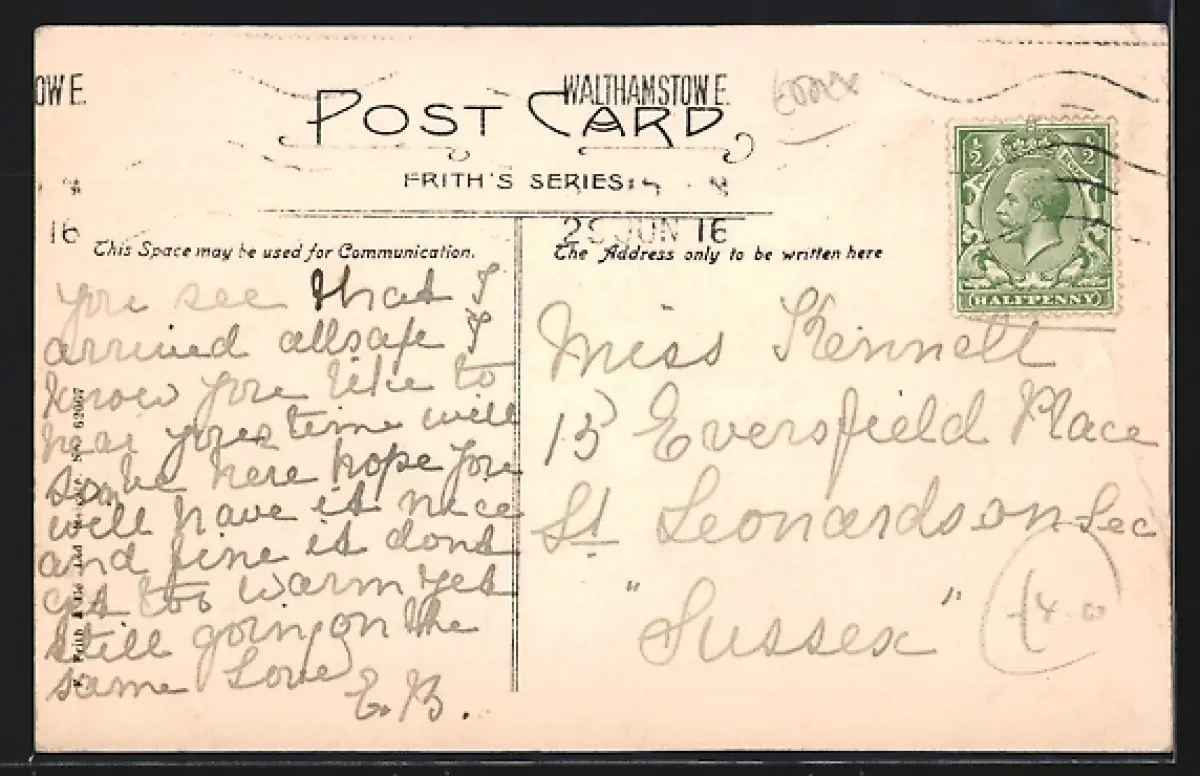 OW E.
WALTHAMSTOW E.
Essex
POST CARD
FRITH'S SERIES
16
29 JUN 16
This Space may be used for Communication.
The Address only to be written here
½ ½
HALFPENNY
you see that I
arrived allsafe I
know you like to
hear your time will
soon be here hope you
will have it nice
and fine it dont
get too warm yet
still going on the
same Love
E.B.
Miss Kennett
15 Eversfield Place
St Leonards on Sea
"Sussex"
62067